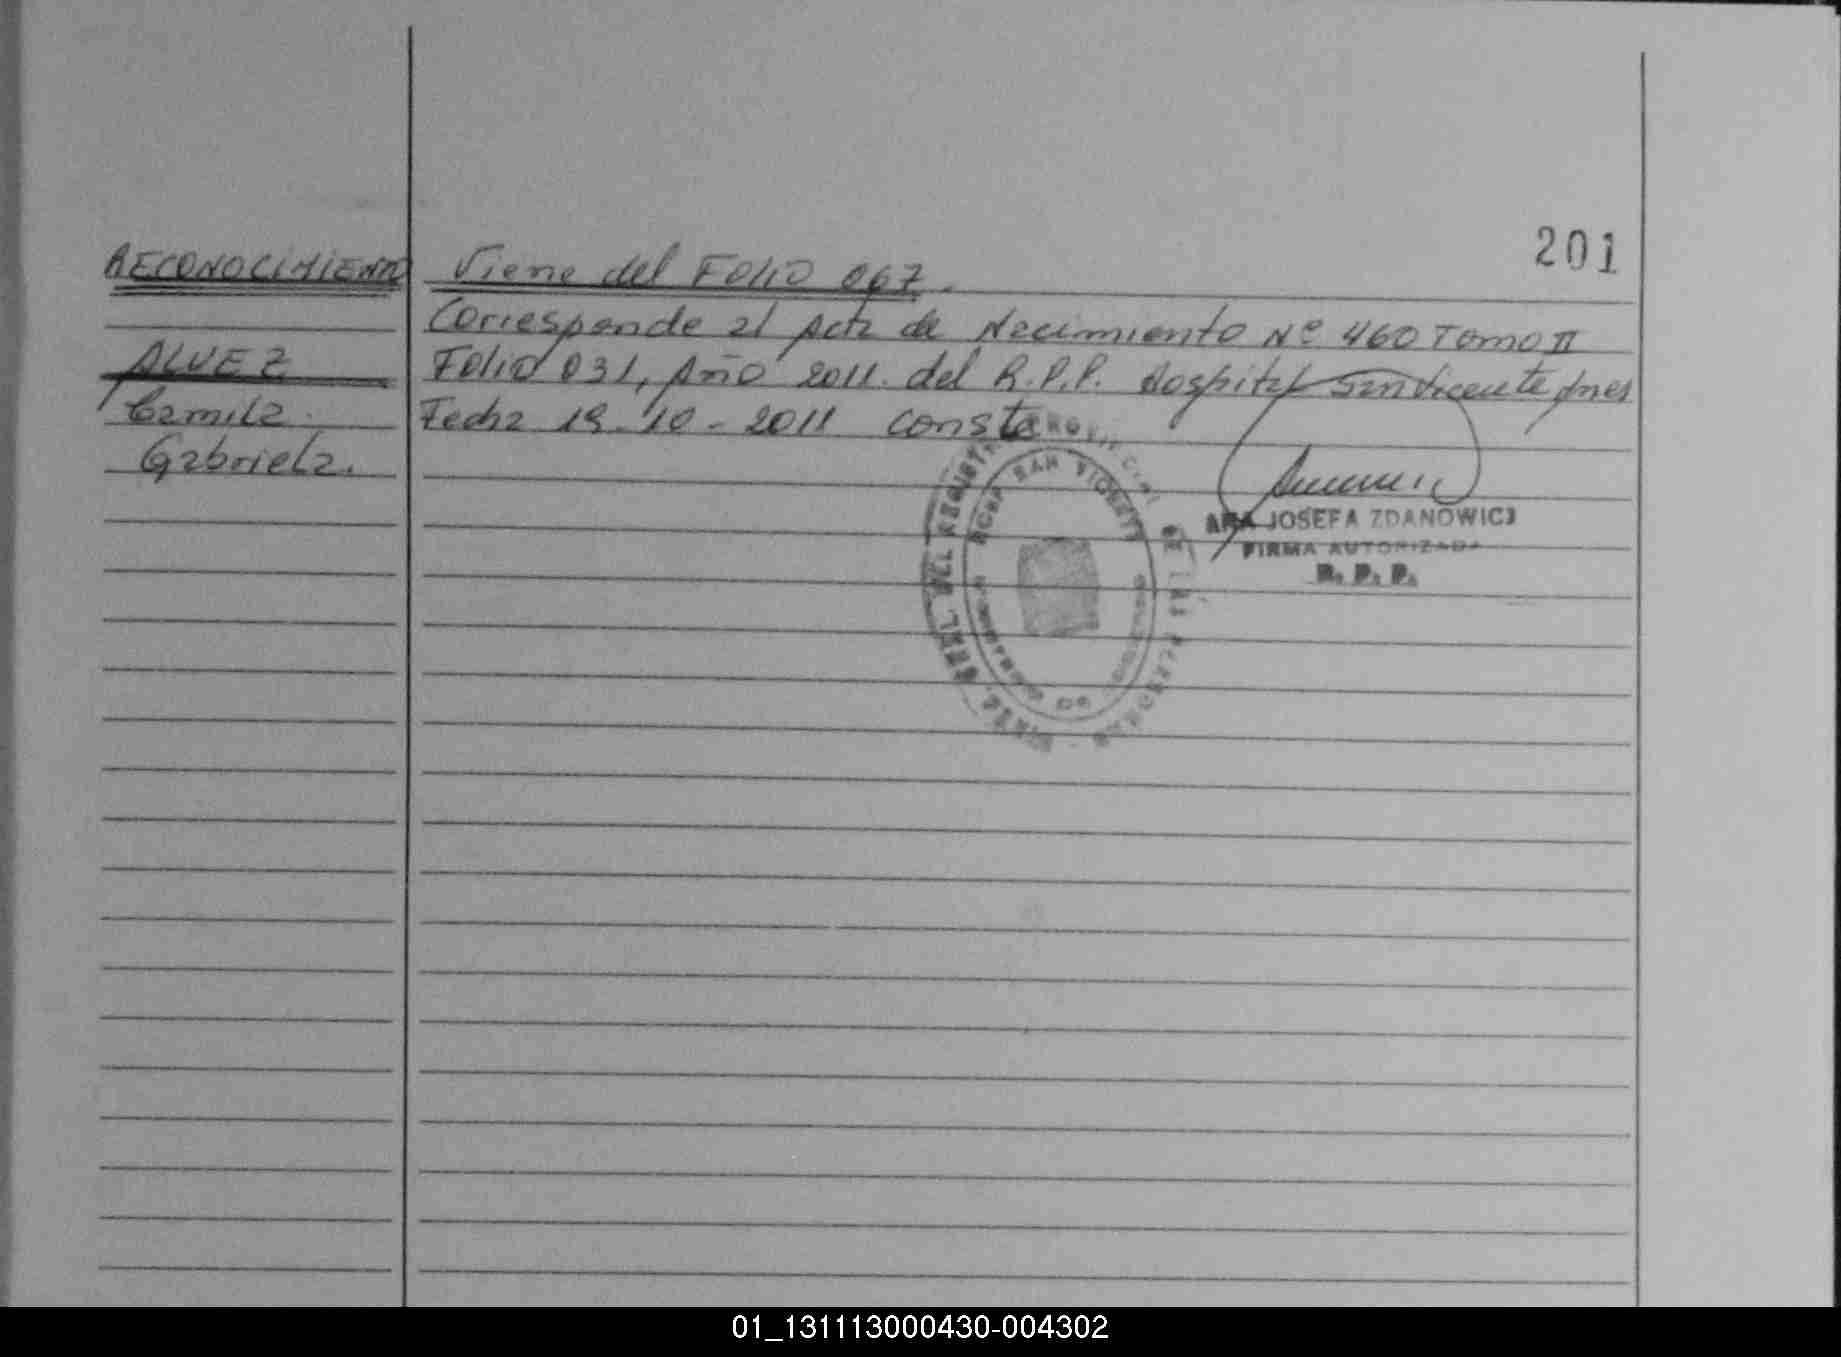 201
RECONOCIMIENTO Viene del Folio 067.
Corresponde al Acta de Nacimiento Nº 460 Tomo II
ALVEZ Folio 031, Año 2011. del R.P.P. Hospital San Vicente
Camila Fecha 19-10-2011 Conste
Gabriela.
RCDP SAN VICENTE
ANA JOSEFA ZDANOWICZ
FIRMA AUTORIZADA
R. P. P.
DE LAS PERSONAS
01_131113000430-004302